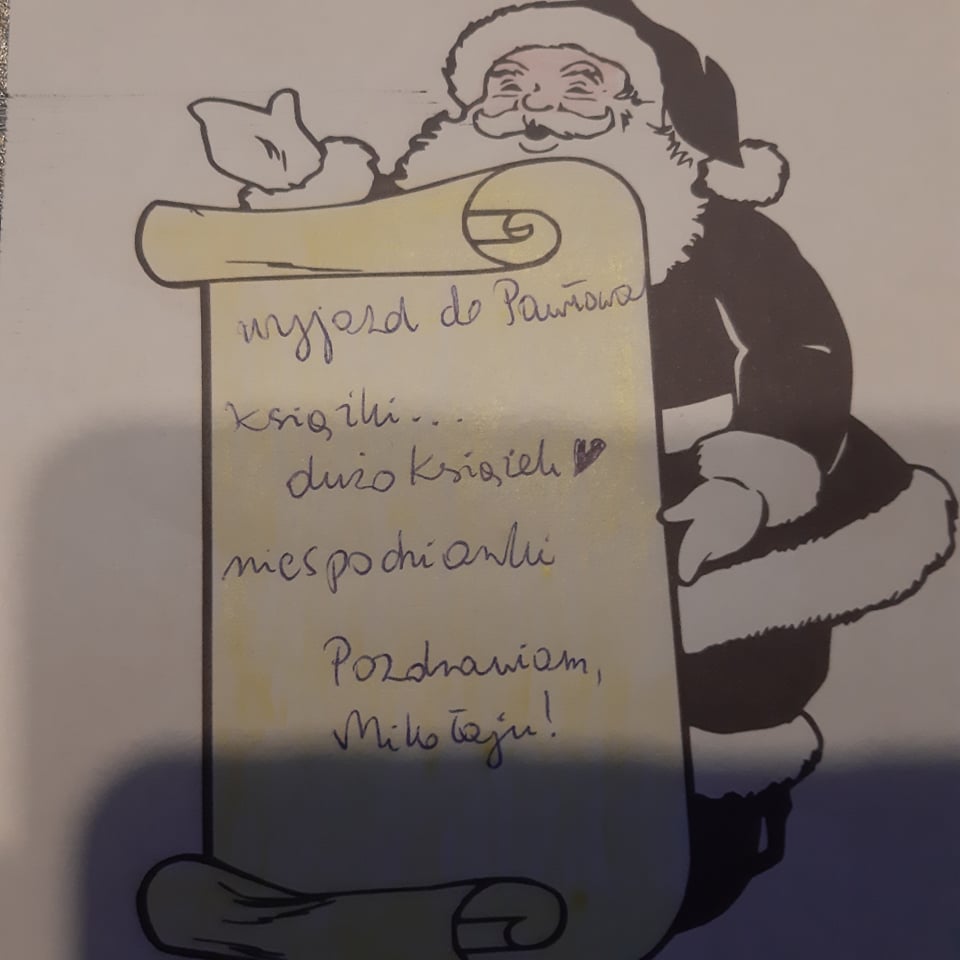 wyjazd do Pawłowa
książki...
dużo książek ♥
niespodzianki
Pozdrawiam,
Mikołaju!